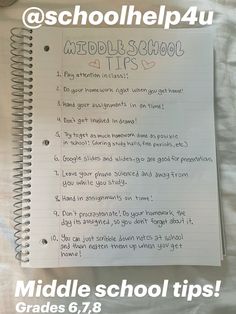 @schoolhelp4u
MIDDLE SCHOOL
TIPS
1. Pay attention in class!
2. Do your homework right when you get home!
3. Hand your assignments in on time!
4. Don't get involved in drama!
5. Try to get as much homework done as possible
in school! (during study halls, free periods, etc.)
6. Google slides and slides-go are good for presentations
7. Leave your phone silenced and away from
you while you study.
8. Hand in assignments on time!
9. Don't procrastinate! Do your homework the
day its assigned, so you don't forget about it.
10. You can just scribble down notes at school
and then neaten them up when you get
home!
Middle school tips!
Grades 6,7,8